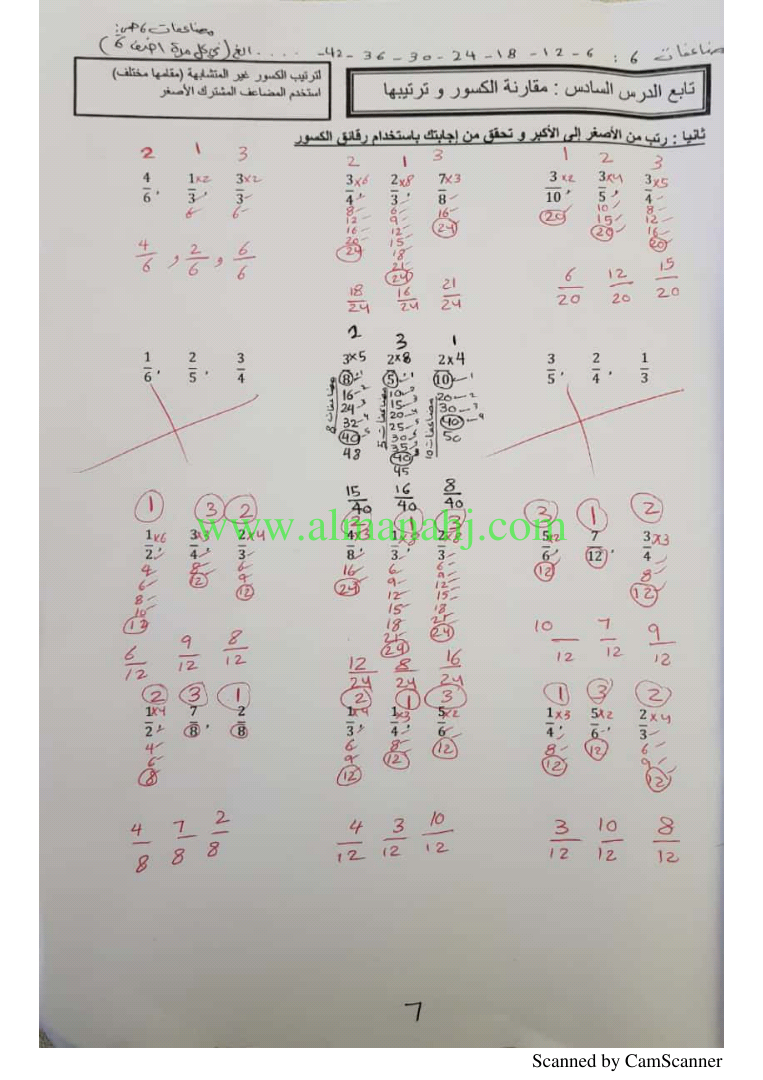 مضاعفات 6 هي:
مضاعفات 6 : 6 - 12 - 18 - 24 - 30 - 36 - 42 - .... الخ (في كل مرة اضف 6)
تابع الدرس السادس : مقارنة الكسور و ترتيبها
لترتيب الكسور غير المتشابهة (مقامها مختلف)
استخدم المضاعف المشترك الأصغر
ثانيا : رتب من الأصغر إلى الأكبر و تحقق من إجابتك باستخدام رقائق الكسور
2 1 3
4/6 , 1×2/3 , 3×2/3
6 6
4/6 , 2/6 , 6/6
2 1 3
3×6/4 , 2×8/3 , 7×3/8
8 6 16
12 9 24
16 12
20 15
24 18
21
24
18/24 16/24 21/24
1 2 3
3×2/10 , 3×4/5 , 3×5/4
20 10 8
15 12
20 16
20
6/20 12/20 15/20
1/6 , 2/5 , 3/4
2 3 1
3×5/8 2×8/5 2×4/10
مضاعفات 8
16
24
32
40
48
مضاعفات 5
10
15
20
25
30
35
40
45
مضاعفات 10
20
30
40
50
15/40 16/40 8/40
3/5 , 2/4 , 1/3
www.almanahj.com
1 3 2
1×6/2 , 3×3/4 , 2×4/3
4 8 6
6 12 9
8 12
10
12
6/12 9/12 8/12
2 1 3
4×3/8 , 1×8/3 , 2×8/3
16 6 6
24 9 9
12 12
15 15
18 18
21 21
24 24
12/24 8/24 16/24
3 1 2
5×2/6 , 7/12 , 3×3/4
12 8
12
10/12 7/12 9/12
2 3 1
1×4/2 , 7/8 , 2/8
4
6
8
4/8 7/8 2/8
2 1 3
1×4/3 , 1×3/4 , 5×2/6
6 8 12
9 12
12
4/12 3/12 10/12
1 3 2
1×3/4 , 5×2/6 , 2×4/3
8 12 6
12 9
12
3/12 10/12 8/12
7
Scanned by CamScanner